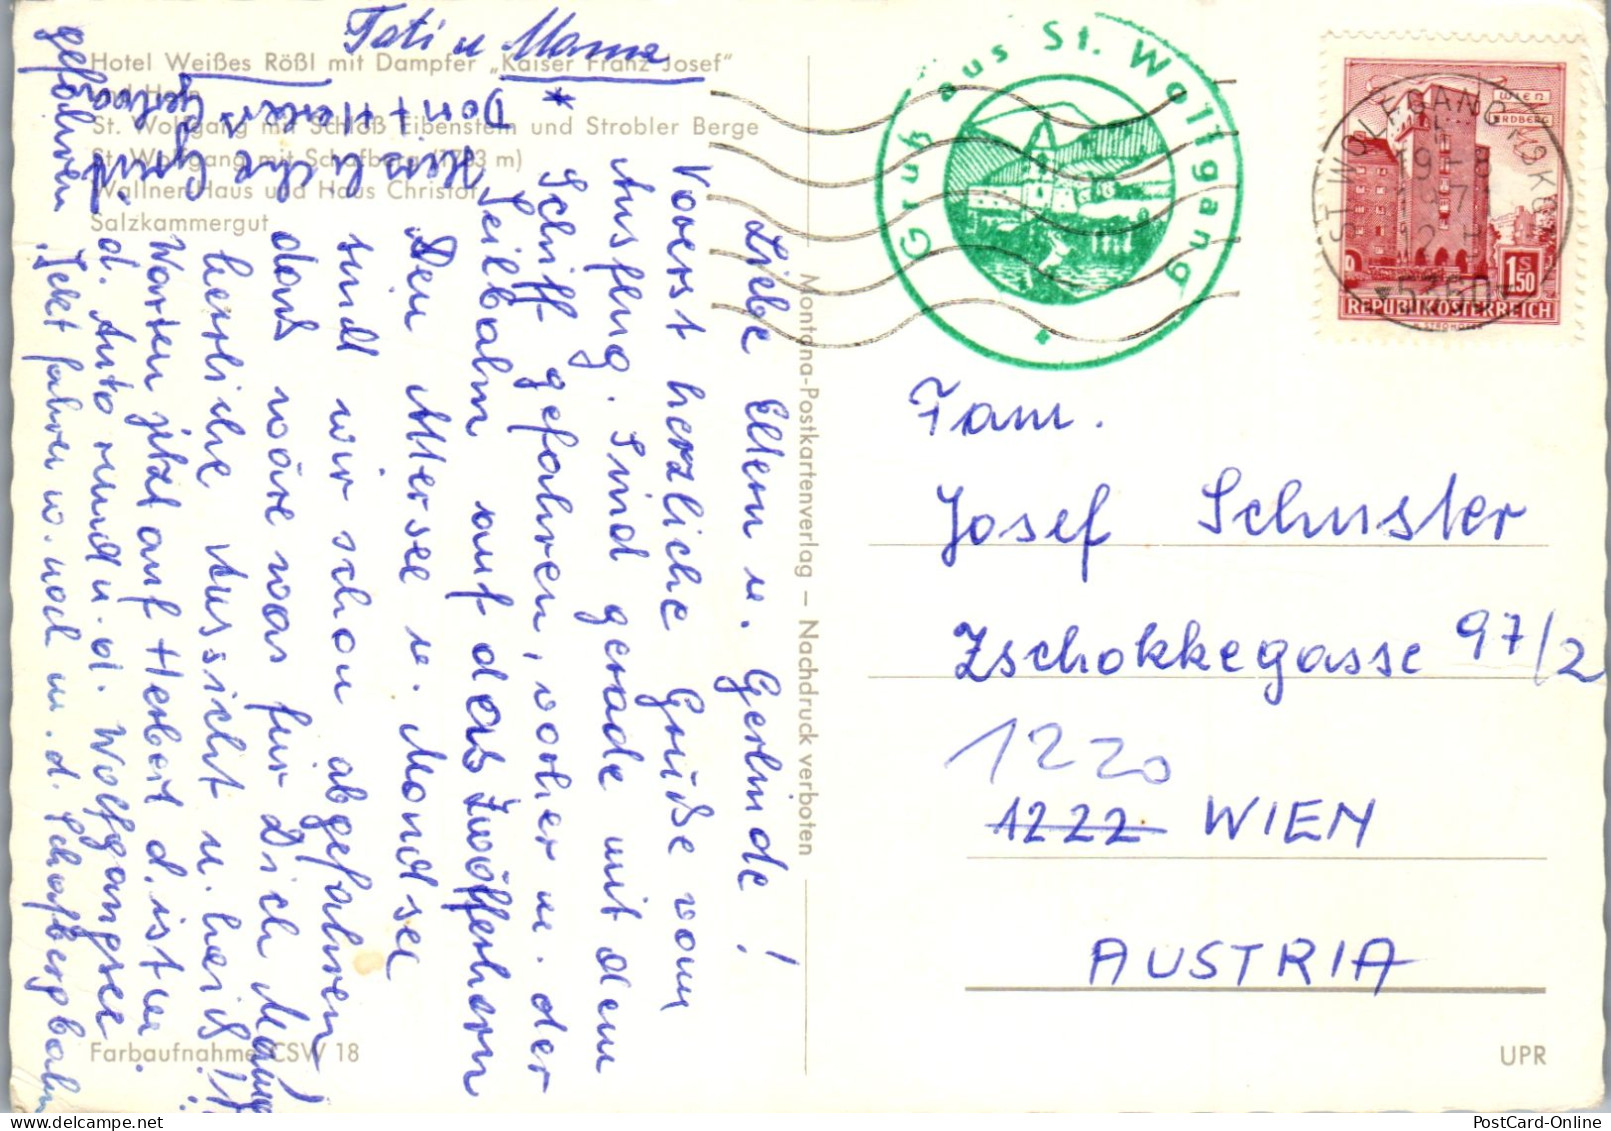 Hotel Weißes Rößl mit Dampfer „Kaiser Franz Josef"
St. Wolfgang mit Schloß Eibenstein und Strobler Berge
St. Wolfgang mit Schafberg (1783 m)
Wallner Haus und Haus Christof
Salzkammergut
Liebe Eltern u. Gerlinde!
Vorerst herzliche Grüße vom
Ausflug. Sind gerade mit dem
Schiff gefahren, vorher m. der
Seilbahn auf das Zwölferhorn
Den Attersee u. Mondsee
sind wir schon abgefahren!
das wäre was für Dich Mama
herrliche Aussicht u. heiß!!
Warten jetzt auf Herbert d. ist m.
d. Auto rund u. d. Wolfgangsee
Jetzt fahren w. noch m. d. Schafbergbahn
gefahren
Herzliche Grüße
Tati u Mama
Montana-Postkartenverlag – Nachdruck verboten
Farbaufnahme CSW 18
Gruß aus St. Wolfgang
ST. WOLFGANG
19-8
5360
WIEN
ERDBERG
1.50
S
REPUBLIK ÖSTERREICH
Fam.
Josef Schuster
Zschokkegasse 97/2
1220
1222 WIEN
AUSTRIA
UPR